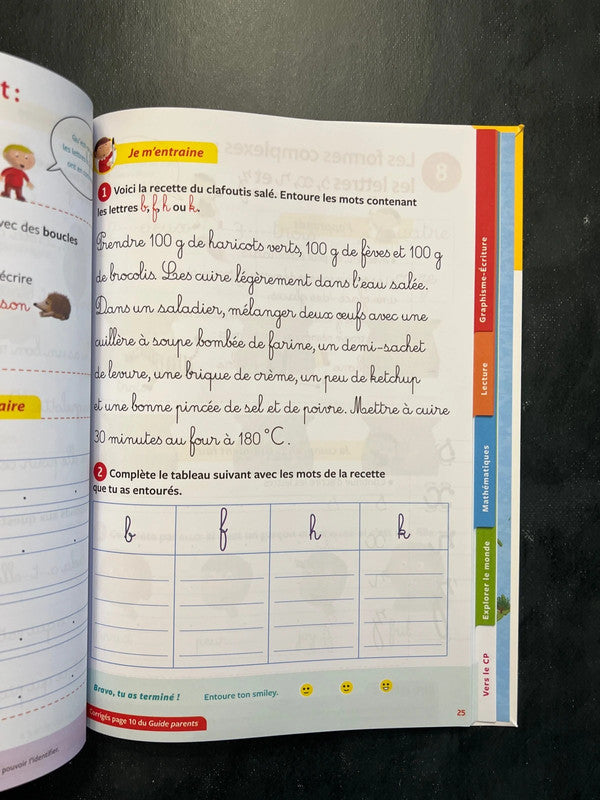 t :
vec des boucles
écrire
son
aire
pouvoir l'identifier.
Je m'entraine
1 Voici la recette du clafoutis salé. Entoure les mots contenant
les lettres b, f, h ou k.
Prendre 100 g de haricots verts, 100 g de fèves et 100 g
de brocolis. Les cuire légèrement dans l'eau salée.
Dans un saladier, mélanger deux œufs avec une
cuillère à soupe bombée de farine, un demi-sachet
de levure, une brique de crème, un peu de ketchup
et une bonne pincée de sel et de poivre. Mettre à cuire
30 minutes au four à 180 °C.
2 Complète le tableau suivant avec les mots de la recette
que tu as entourés.
b f h k
Bravo, tu as terminé !
Entoure ton smiley.
Corrigés page 10 du Guide parents
25
Graphisme-Écriture
Lecture
Mathématiques
Explorer le monde
Vers le CP